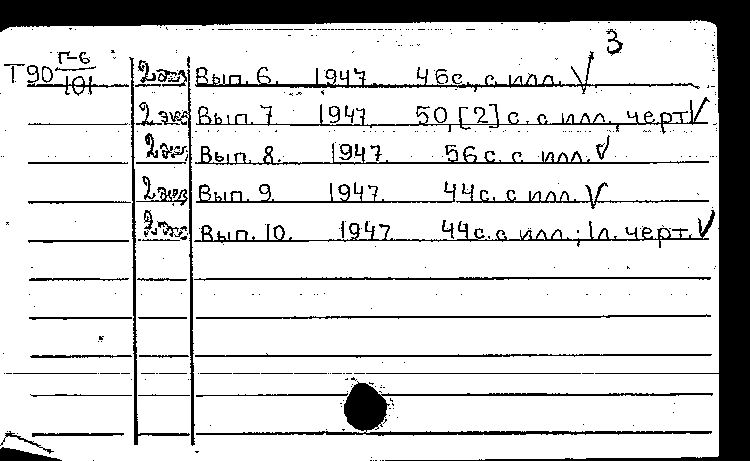 3
Т90 Г-6/101 2 экз Вып. 6. 1947. 46с., с илл. V
2 экз Вып. 7 1947. 50,[2] с. с илл., черт V
2 эк. Вып. 8. 1947. 56с. с илл. V
2 экз Вып. 9. 1947. 44с. с илл. V
2 экз Вып. 10. 1947 44с. с илл.; 1л. черт. V